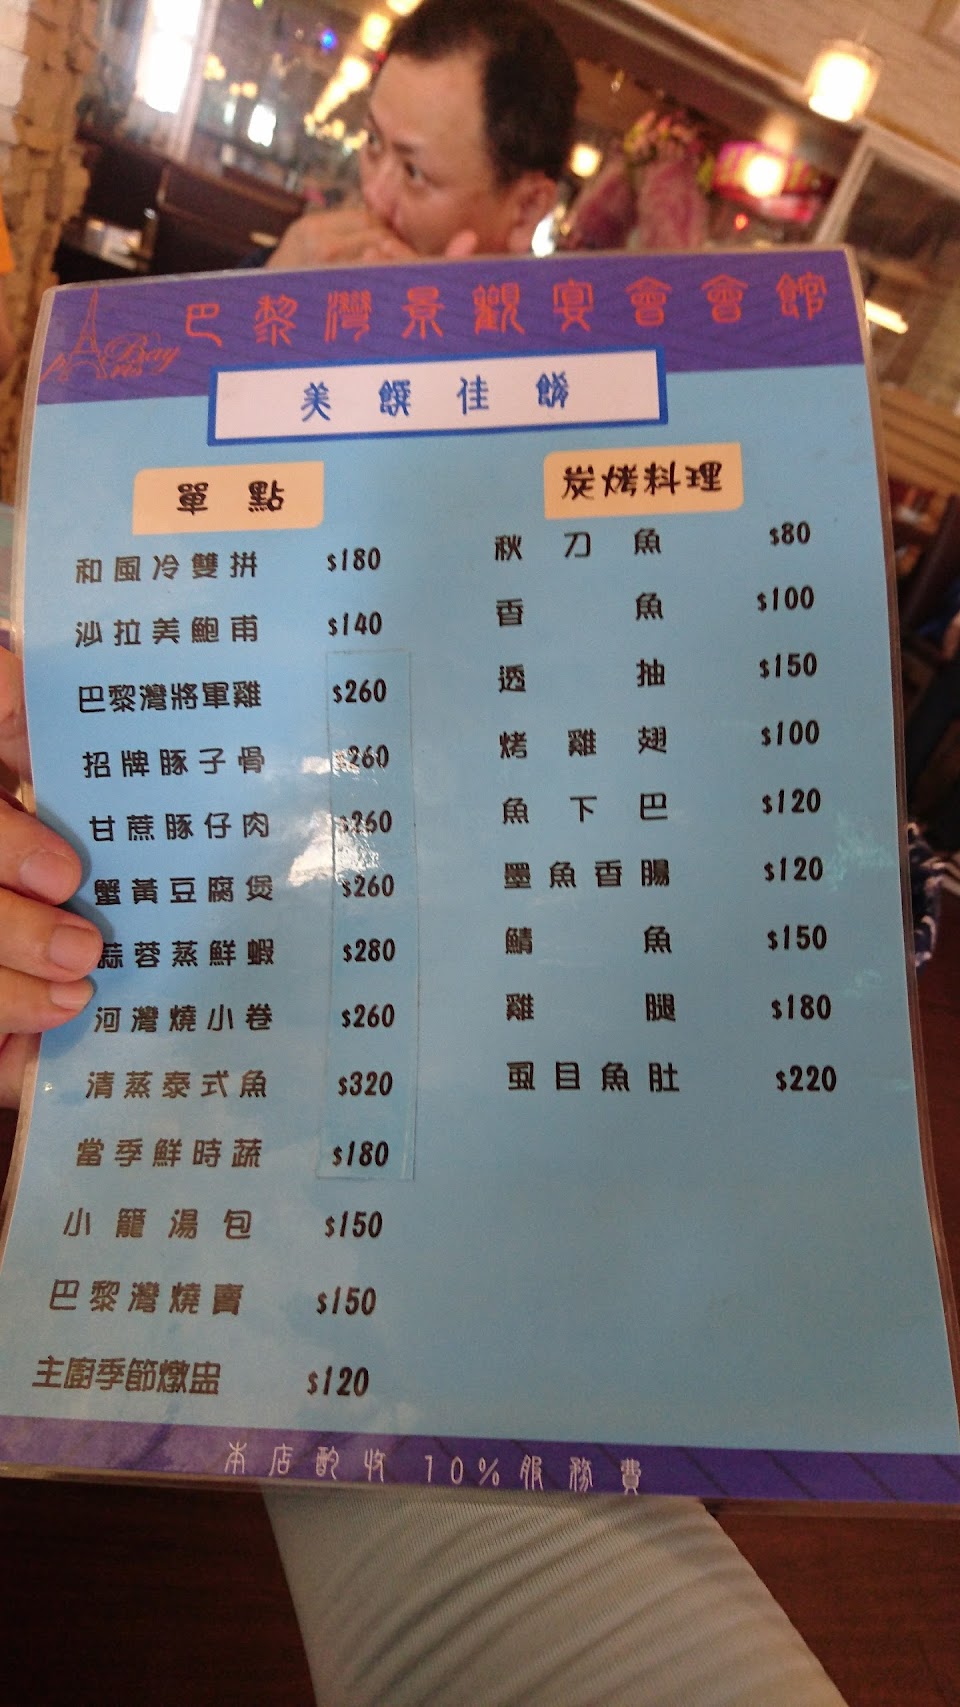 巴黎灣景觀宴會會館
Paris Bay
美饌佳餚
單點
和風冷雙拼 $180
沙拉美鮑甫 $140
巴黎灣將軍雞 $260
招牌豚子骨 $260
甘蔗豚仔肉 $260
蟹黃豆腐煲 $260
蒜蓉蒸鮮蝦 $280
河灣燒小卷 $260
清蒸泰式魚 $320
當季鮮時蔬 $180
小籠湯包 $150
巴黎灣燒賣 $150
主廚季節燉盅 $120
炭烤料理
秋刀魚 $80
香魚 $100
透抽 $150
烤雞翅 $100
魚下巴 $120
墨魚香腸 $120
鯖魚 $150
雞腿 $180
虱目魚肚 $220
本店酌收10%服務費